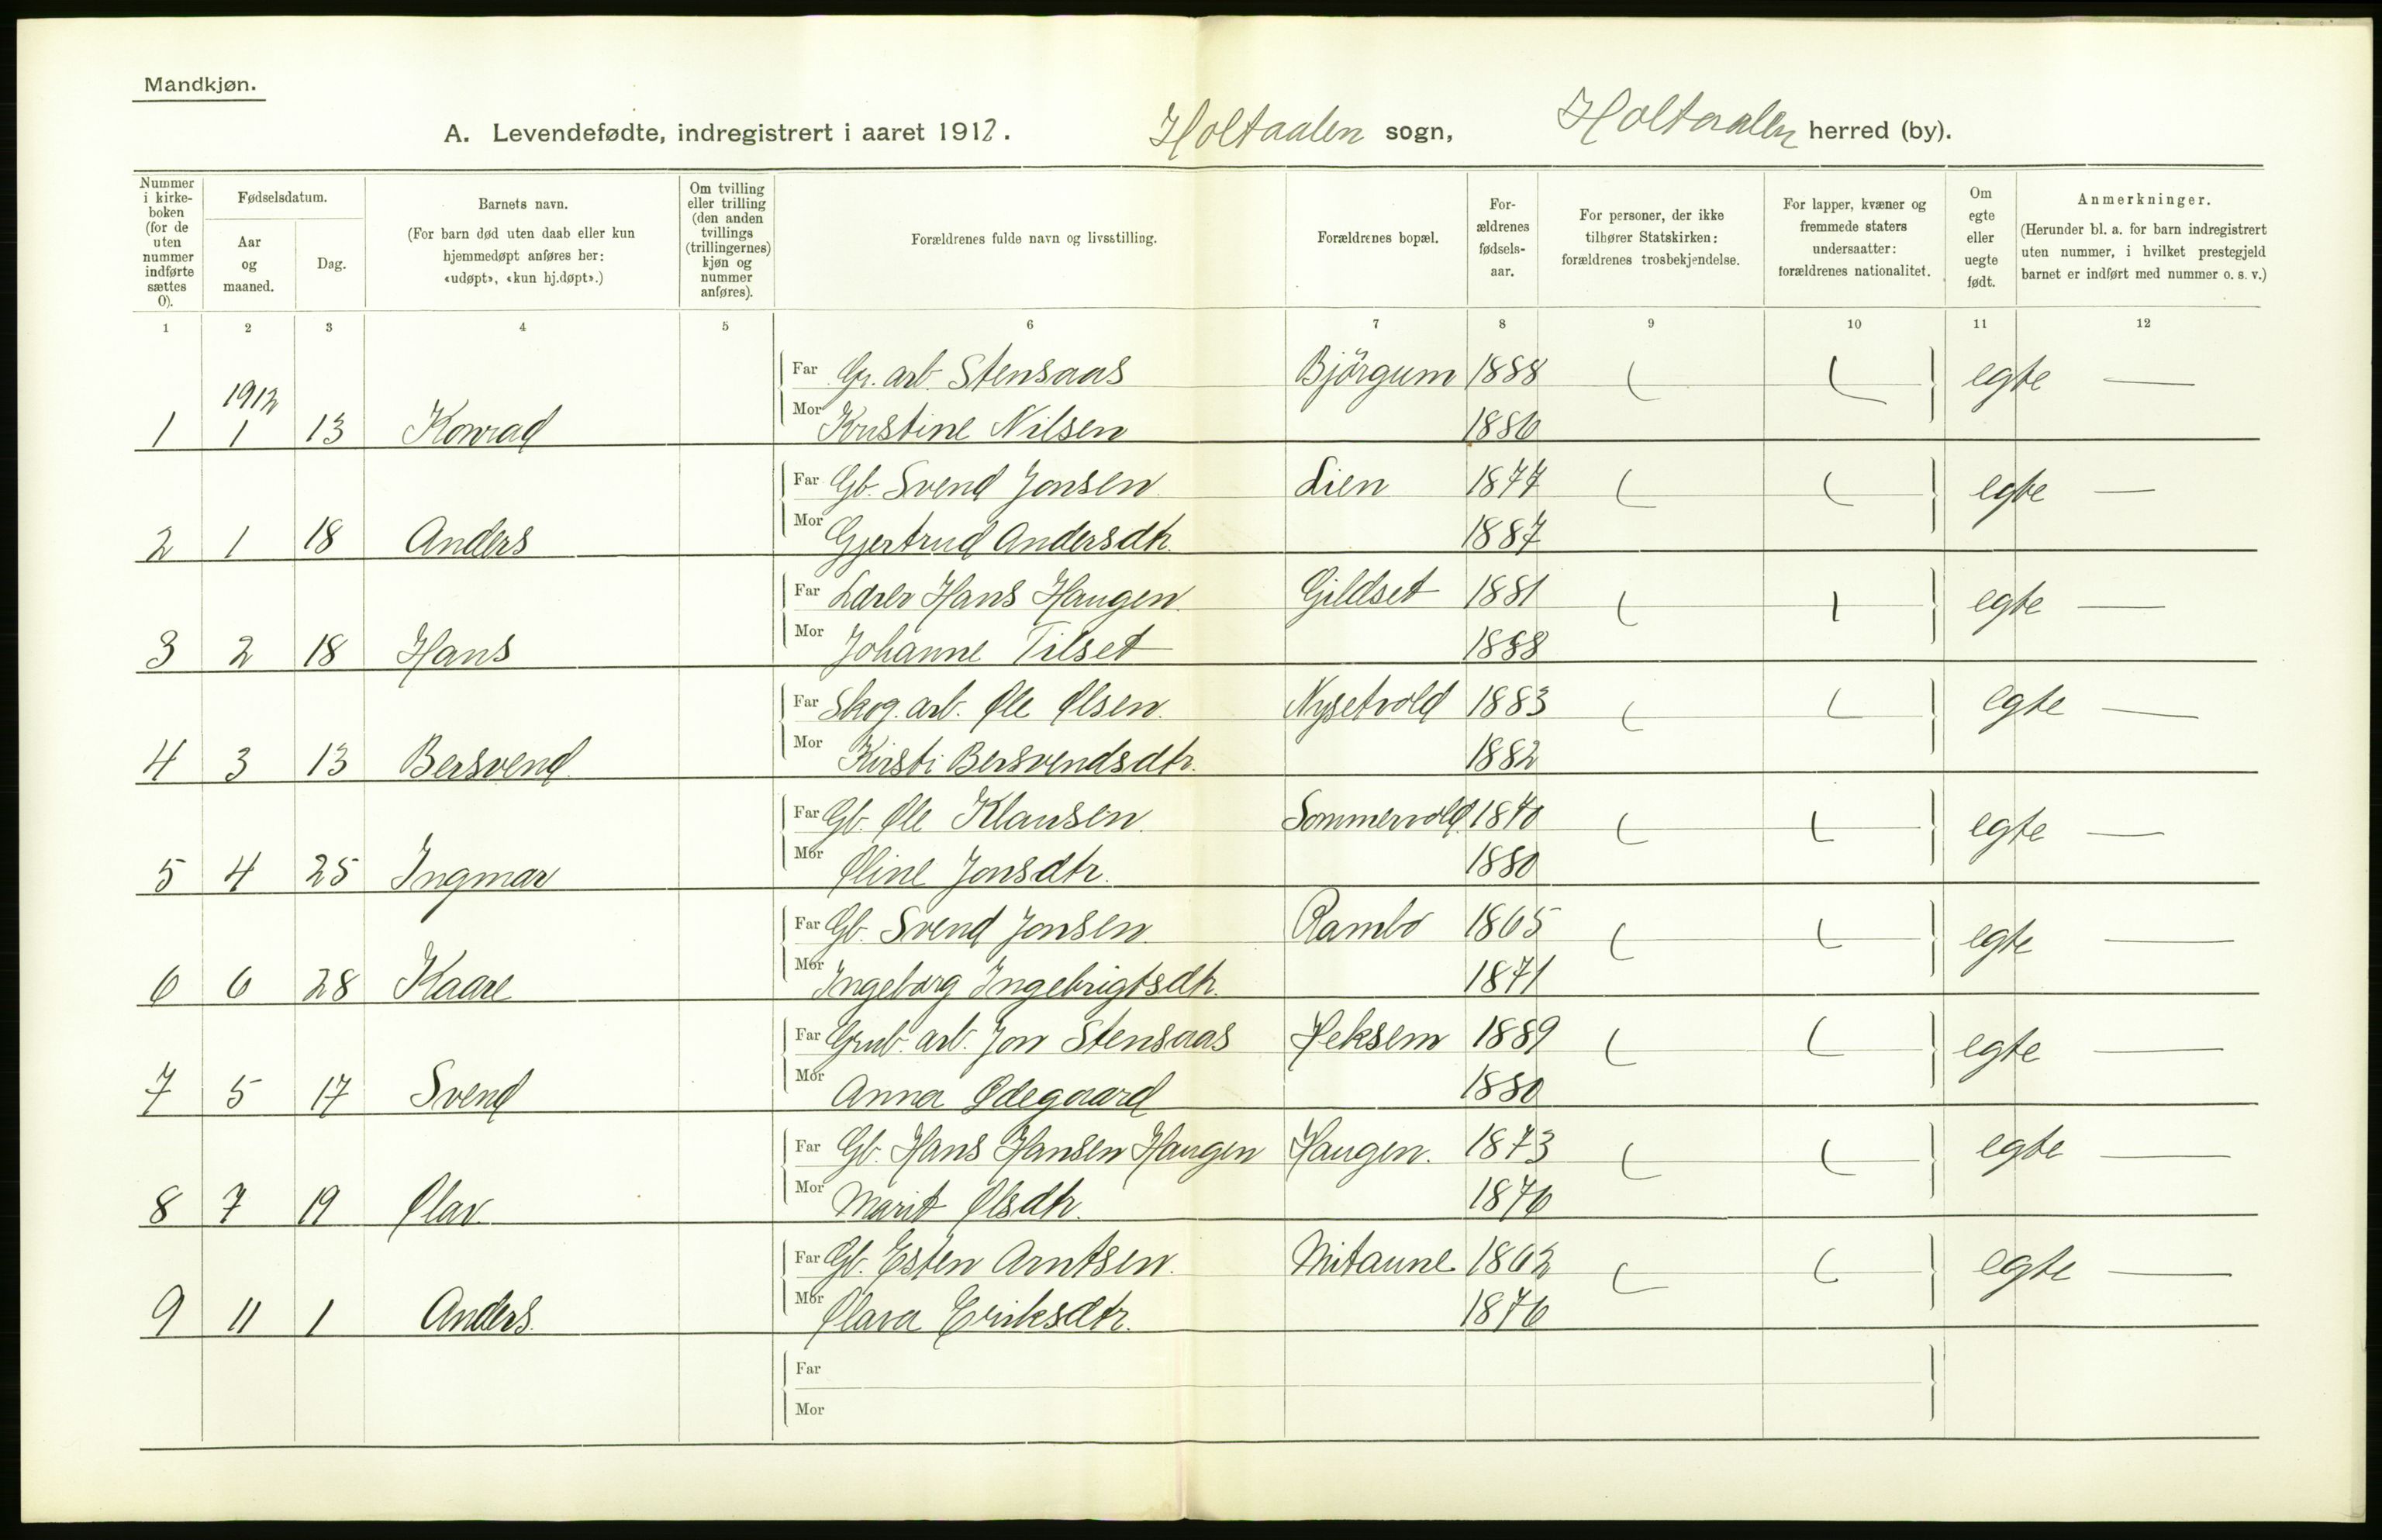 Mandkjøn.
A. Levendefødte, indregistrert i aaret 1912. Holtaalen sogn, Holtaalen herred (by).
Nummer i kirkeboken (for de uten nummer indførte sættes 0).
Fødselsdatum.
Aar og maaned.
Dag.
Barnets navn.
(For barn død uten daab eller kun hjemmedøpt anføres her: «udøpt», «kun hj.døpt».)
Om tvilling eller trilling (den anden tvillings (trillingernes) kjøn og nummer anføres).
Forældrenes fulde navn og livsstilling.
Forældrenes bopæl.
Forældrenes fødselsaar.
For personer, der ikke tilhører Statskirken: forældrenes trosbekjendelse.
For lapper, kvæner og fremmede staters undersaatter: forældrenes nationalitet.
Om egte eller uegte født.
Anmerkninger.
(Herunder bl. a. for barn indregistrert uten nummer, i hvilket prestegjeld barnet er indført med nummer o. s. v.)
1 2 3 4 5 6 7 8 9 10 11 12
Far Gr. arb. Stensaas Björgum 1888 egte —
1912
1 1 13 Konrad Mor Kristine Nilsen 1886
Far Gb. Svend Jonsen Lien 1877 egte —
2 1 18 Anders Mor Gjertrud Andersdtr. 1887
Far Lærer Hans Haugen Gildset 1881 egte —
3 2 18 Hans Mor Johanne Tilset 1888
Far Skog. arb. Ole Olsen. Nysetvold 1883 egte —
4 3 13 Bersvend Mor Kirsti Bersvendsdtr. 1882
Far Gb. Ole Klausen. Sommervold 1870 egte —
5 4 25 Ingmar Mor Oline Jonsdtr. 1880
Far Gb. Svend Jonsen. Rambo 1865 egte —
6 6 28 Kaare Mor Ingeborg Ingebrigtsdtr. 1871
Far Grub. arb. Jon Stensaas Heksem 1889 egte —
7 5 17 Svend Mor Anna Ødegaard 1880
Far Gb. Hans Hansen Haugen Haugen. 1873 egte —
8 7 19 Olav Mor Marit Olsdtr. 1876
Far Gb. Esten Arntsen. Mitaune 1862 egte —
9 11 1 Anders. Mor Olava Eriksdtr. 1876
Far
Mor